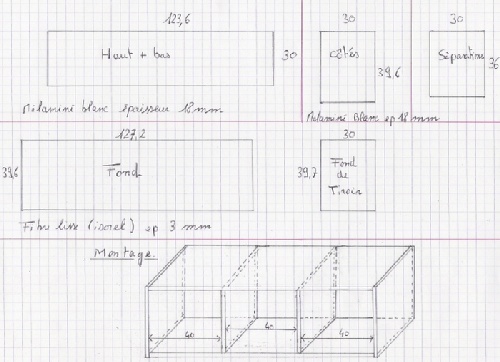 123,6
30
30
Haut + bas
30
Côtés
39,6
Séparations
36
Mélaminé blanc épaisseur 18 mm
Mélaminé Blanc ep 18 mm
127,2
30
39,6
Fond
39,7
Fond
de
Tiroir
Fibre lisse (isorel) ep 3 mm
Montage
40
40
40